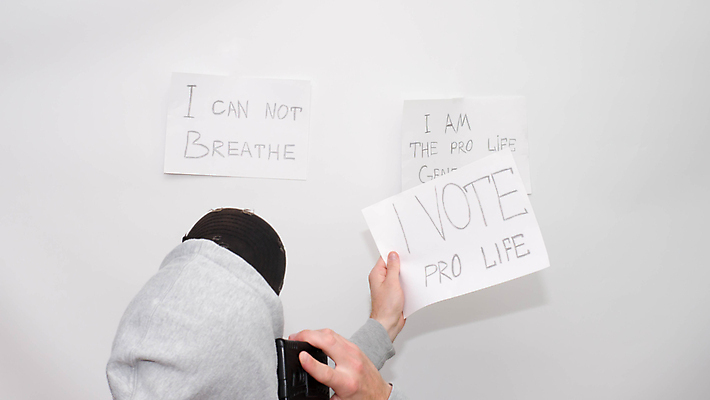 I CAN NOT
BREATHE
I AM
THE PRO LIFE
I VOTE
PRO LIFE